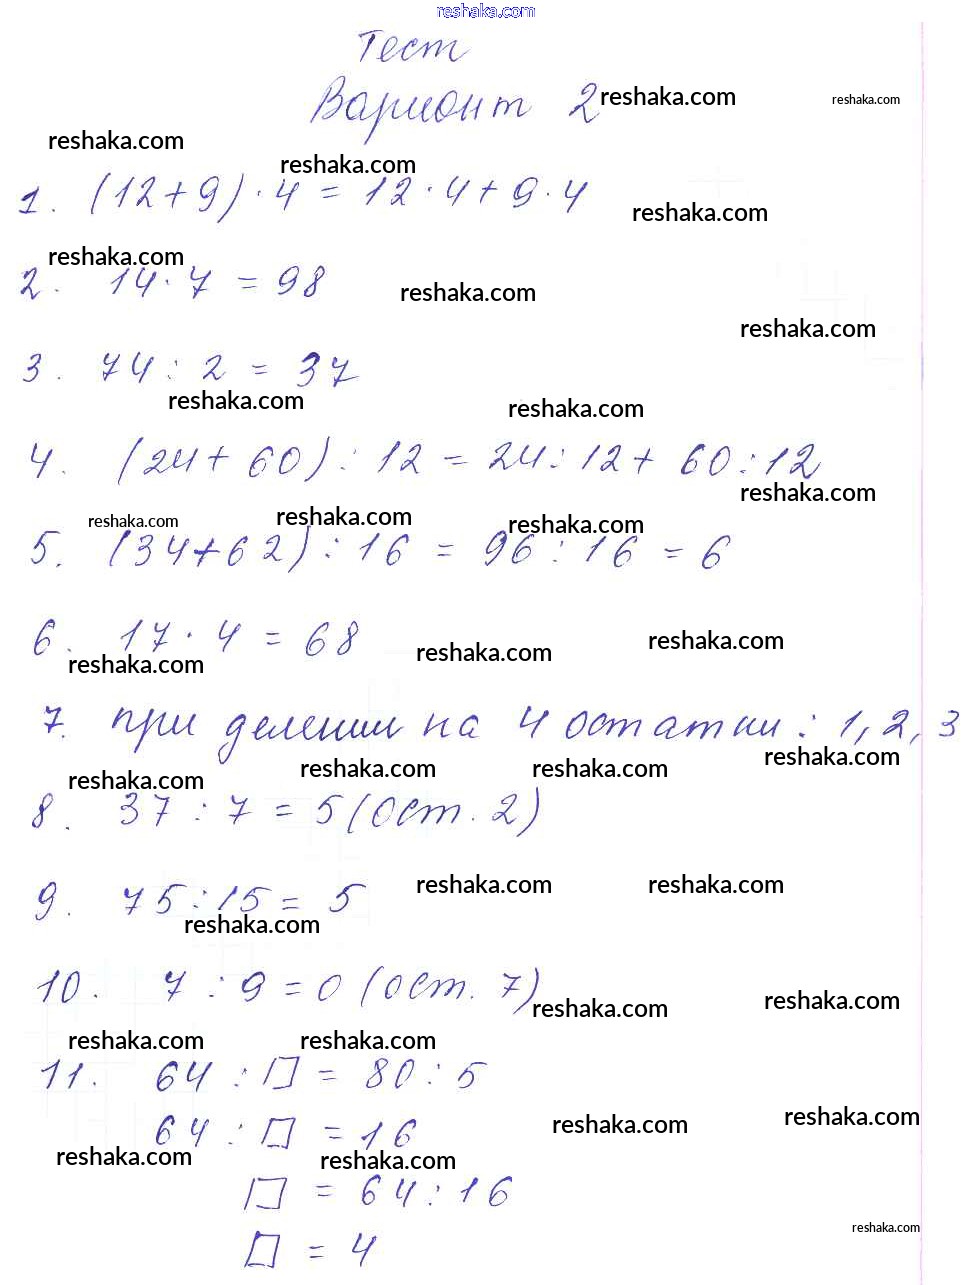 reshaka.com
Тест
Вариант 2 reshaka.com reshaka.com
reshaka.com
reshaka.com
1. (12+9)·4 = 12·4+9·4
reshaka.com
reshaka.com
2. 14·7 = 98
reshaka.com
reshaka.com
3. 74 : 2 = 37
reshaka.com
reshaka.com
4. (24+60) : 12 = 24:12+ 60:12
reshaka.com
reshaka.com reshaka.com reshaka.com
5. (34+62) : 16 = 96 : 16 = 6
6. 17·4 = 68
reshaka.com reshaka.com reshaka.com
7. при делении на 4 остатки : 1, 2, 3
reshaka.com reshaka.com reshaka.com reshaka.com
8. 37 : 7 = 5 (ост. 2)
reshaka.com reshaka.com
9. 75:15 = 5
reshaka.com
10. 7 : 9 = 0 (ост. 7)
reshaka.com reshaka.com
reshaka.com reshaka.com
11. 64 : □ = 80 : 5
64 : □ = 16
reshaka.com reshaka.com
reshaka.com reshaka.com
□ = 64 : 16
□ = 4
reshaka.com